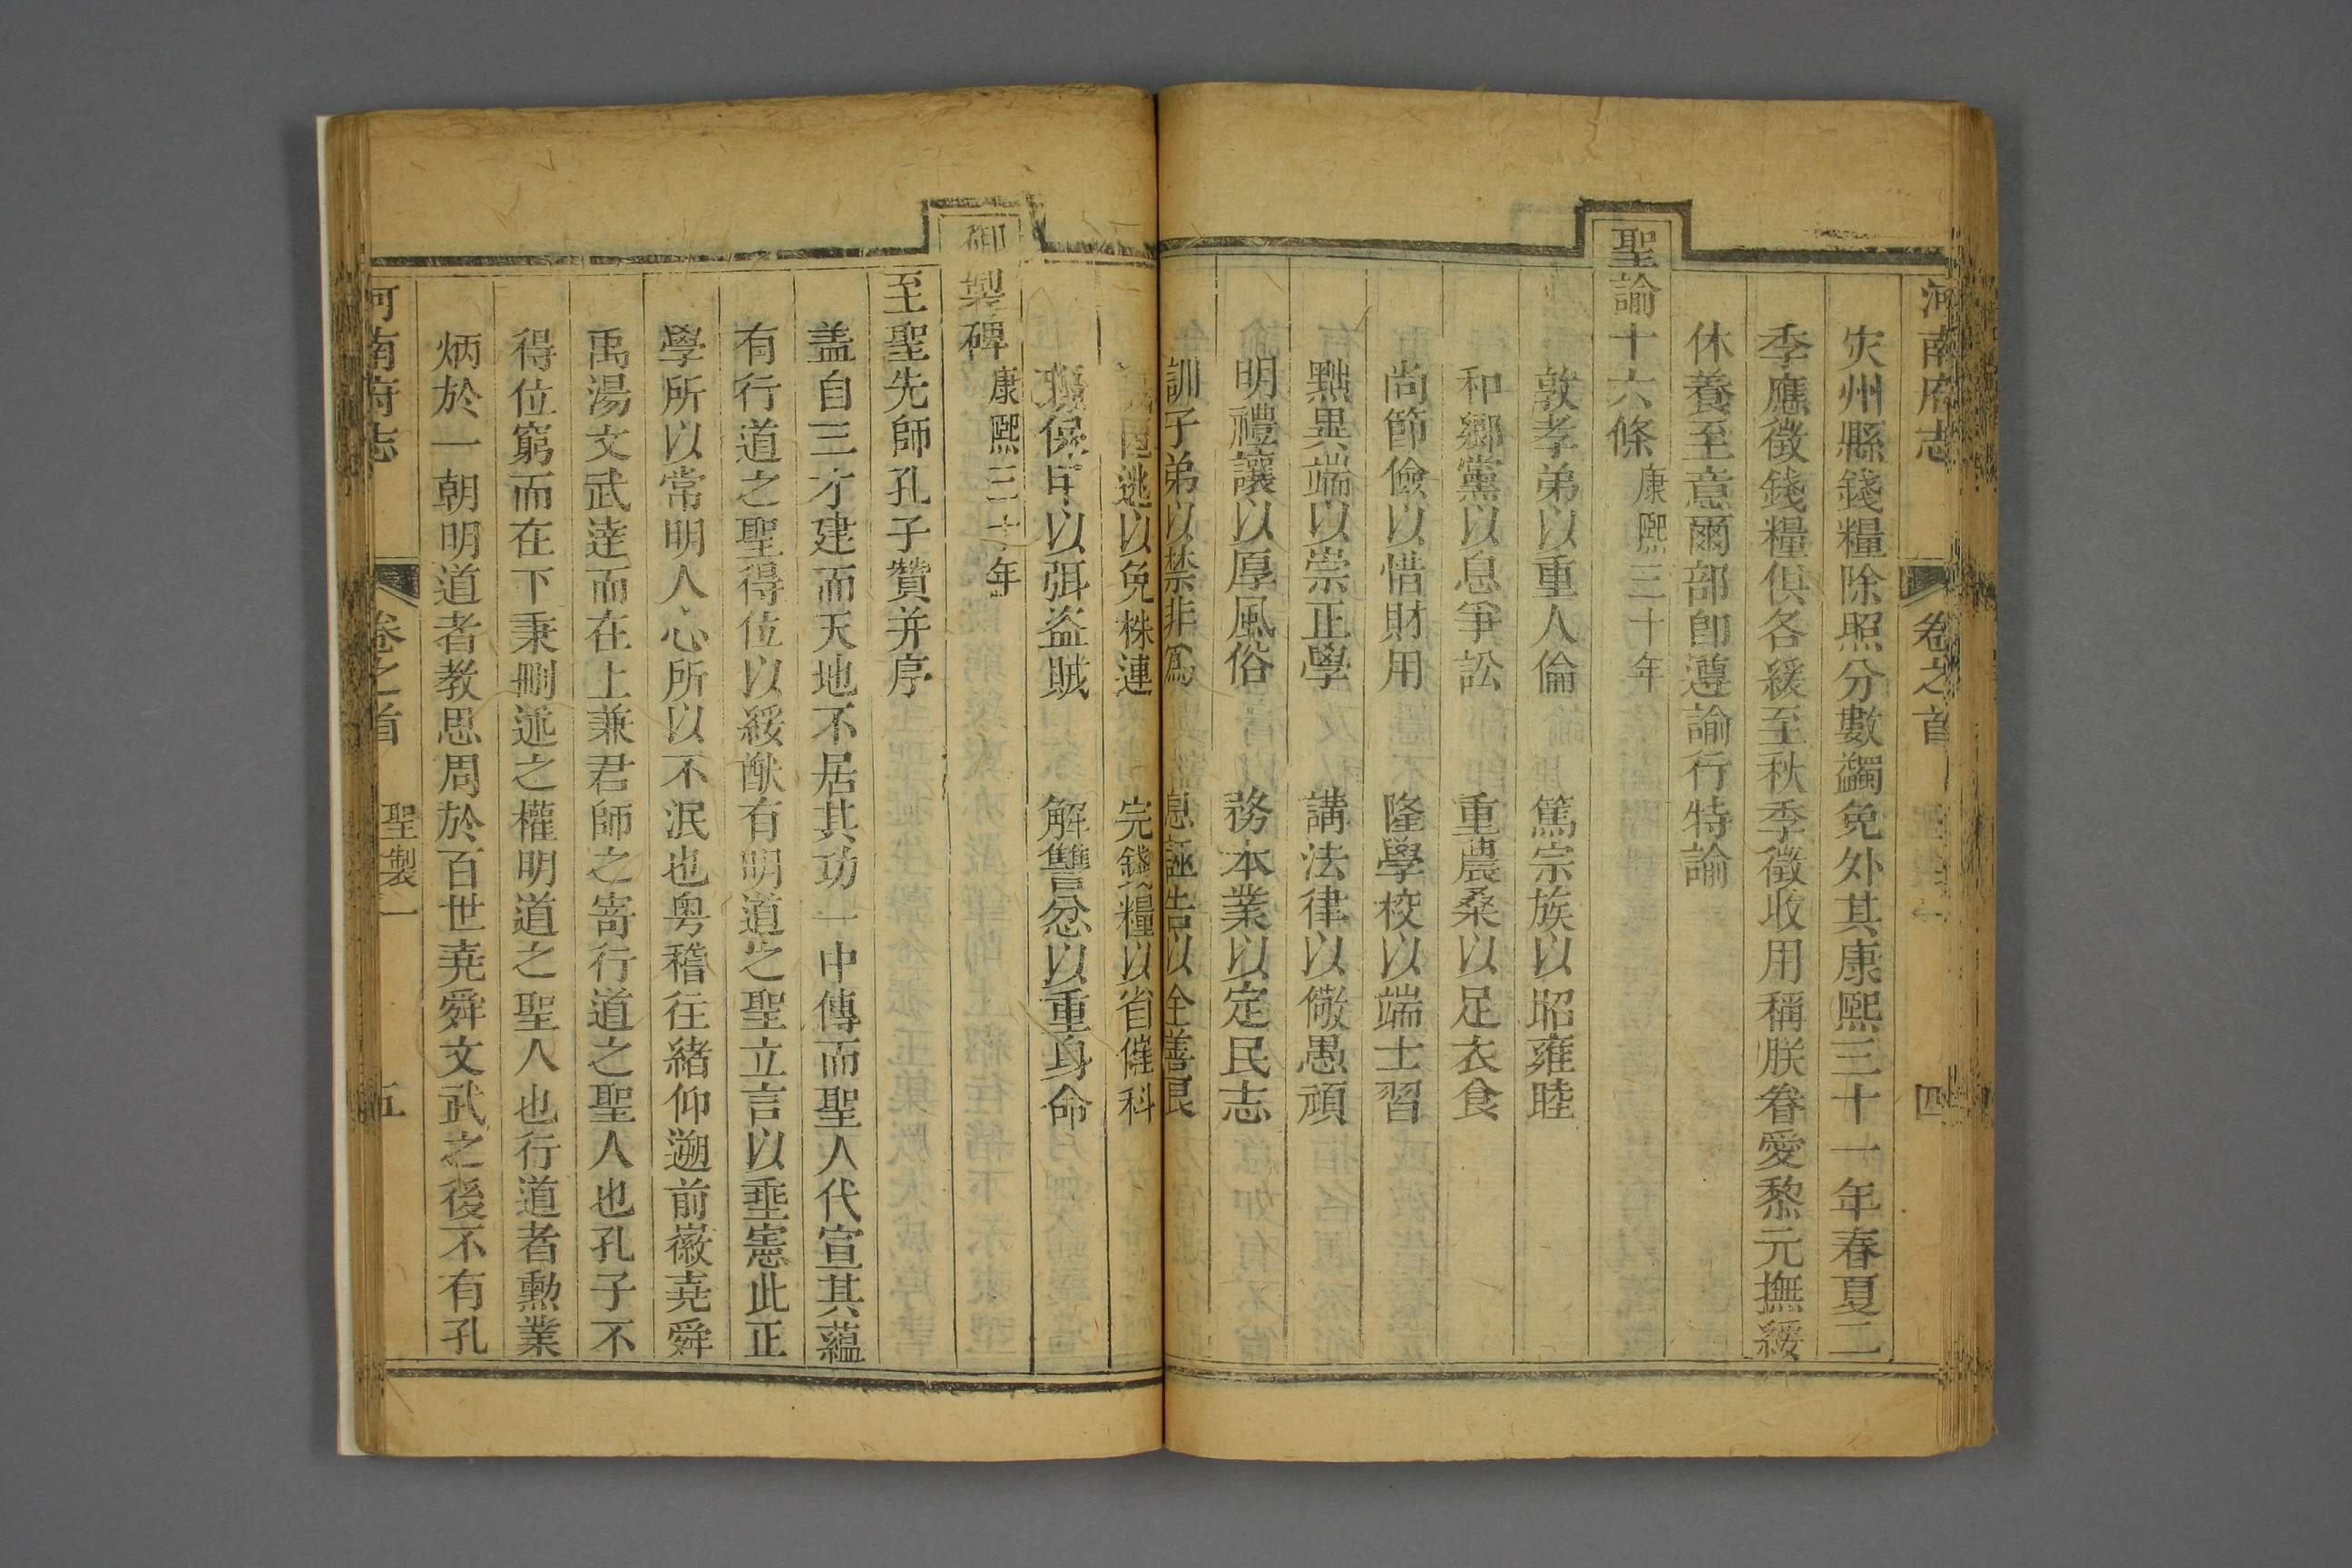 河南府志 卷之首 四
灾州縣錢糧除照分數蠲免外其康熙三十一年春夏二
季應徵錢糧俱各緩至秋季徵收用稱朕眷愛黎元撫綏
休養至意爾部卽遵諭行特諭
聖諭十六條 康熙三十年
敦孝弟以重人倫 篤宗族以昭雍睦
和鄉黨以息爭訟 重農桑以足衣食
尚節儉以惜財用 隆學校以端士習
黜異端以崇正學 講法律以儆愚頑
明禮讓以厚風俗 務本業以定民志
訓子弟以禁非爲 息誣告以全善良
匿逃以免株連 完錢糧以省催科
保甲以弭盜賊 解讐忿以重身命
御製碑 康熙三十年
至聖先師孔子贊并序
盖自三才建而天地不居其功一中傳而聖人代宣其蘊
有行道之聖得位以綏猷有明道之聖立言以垂憲此正
學所以常明人心所以不泯也粤稽往緒仰遡前徽堯舜
禹湯文武逹而在上兼君師之寄行道之聖人也孔子不
得位窮而在下秉刪述之權明道之聖人也行道者勲業
炳於一朝明道者教思周於百世堯舜文武之後不有孔
河南府志 卷之首 聖製一 五